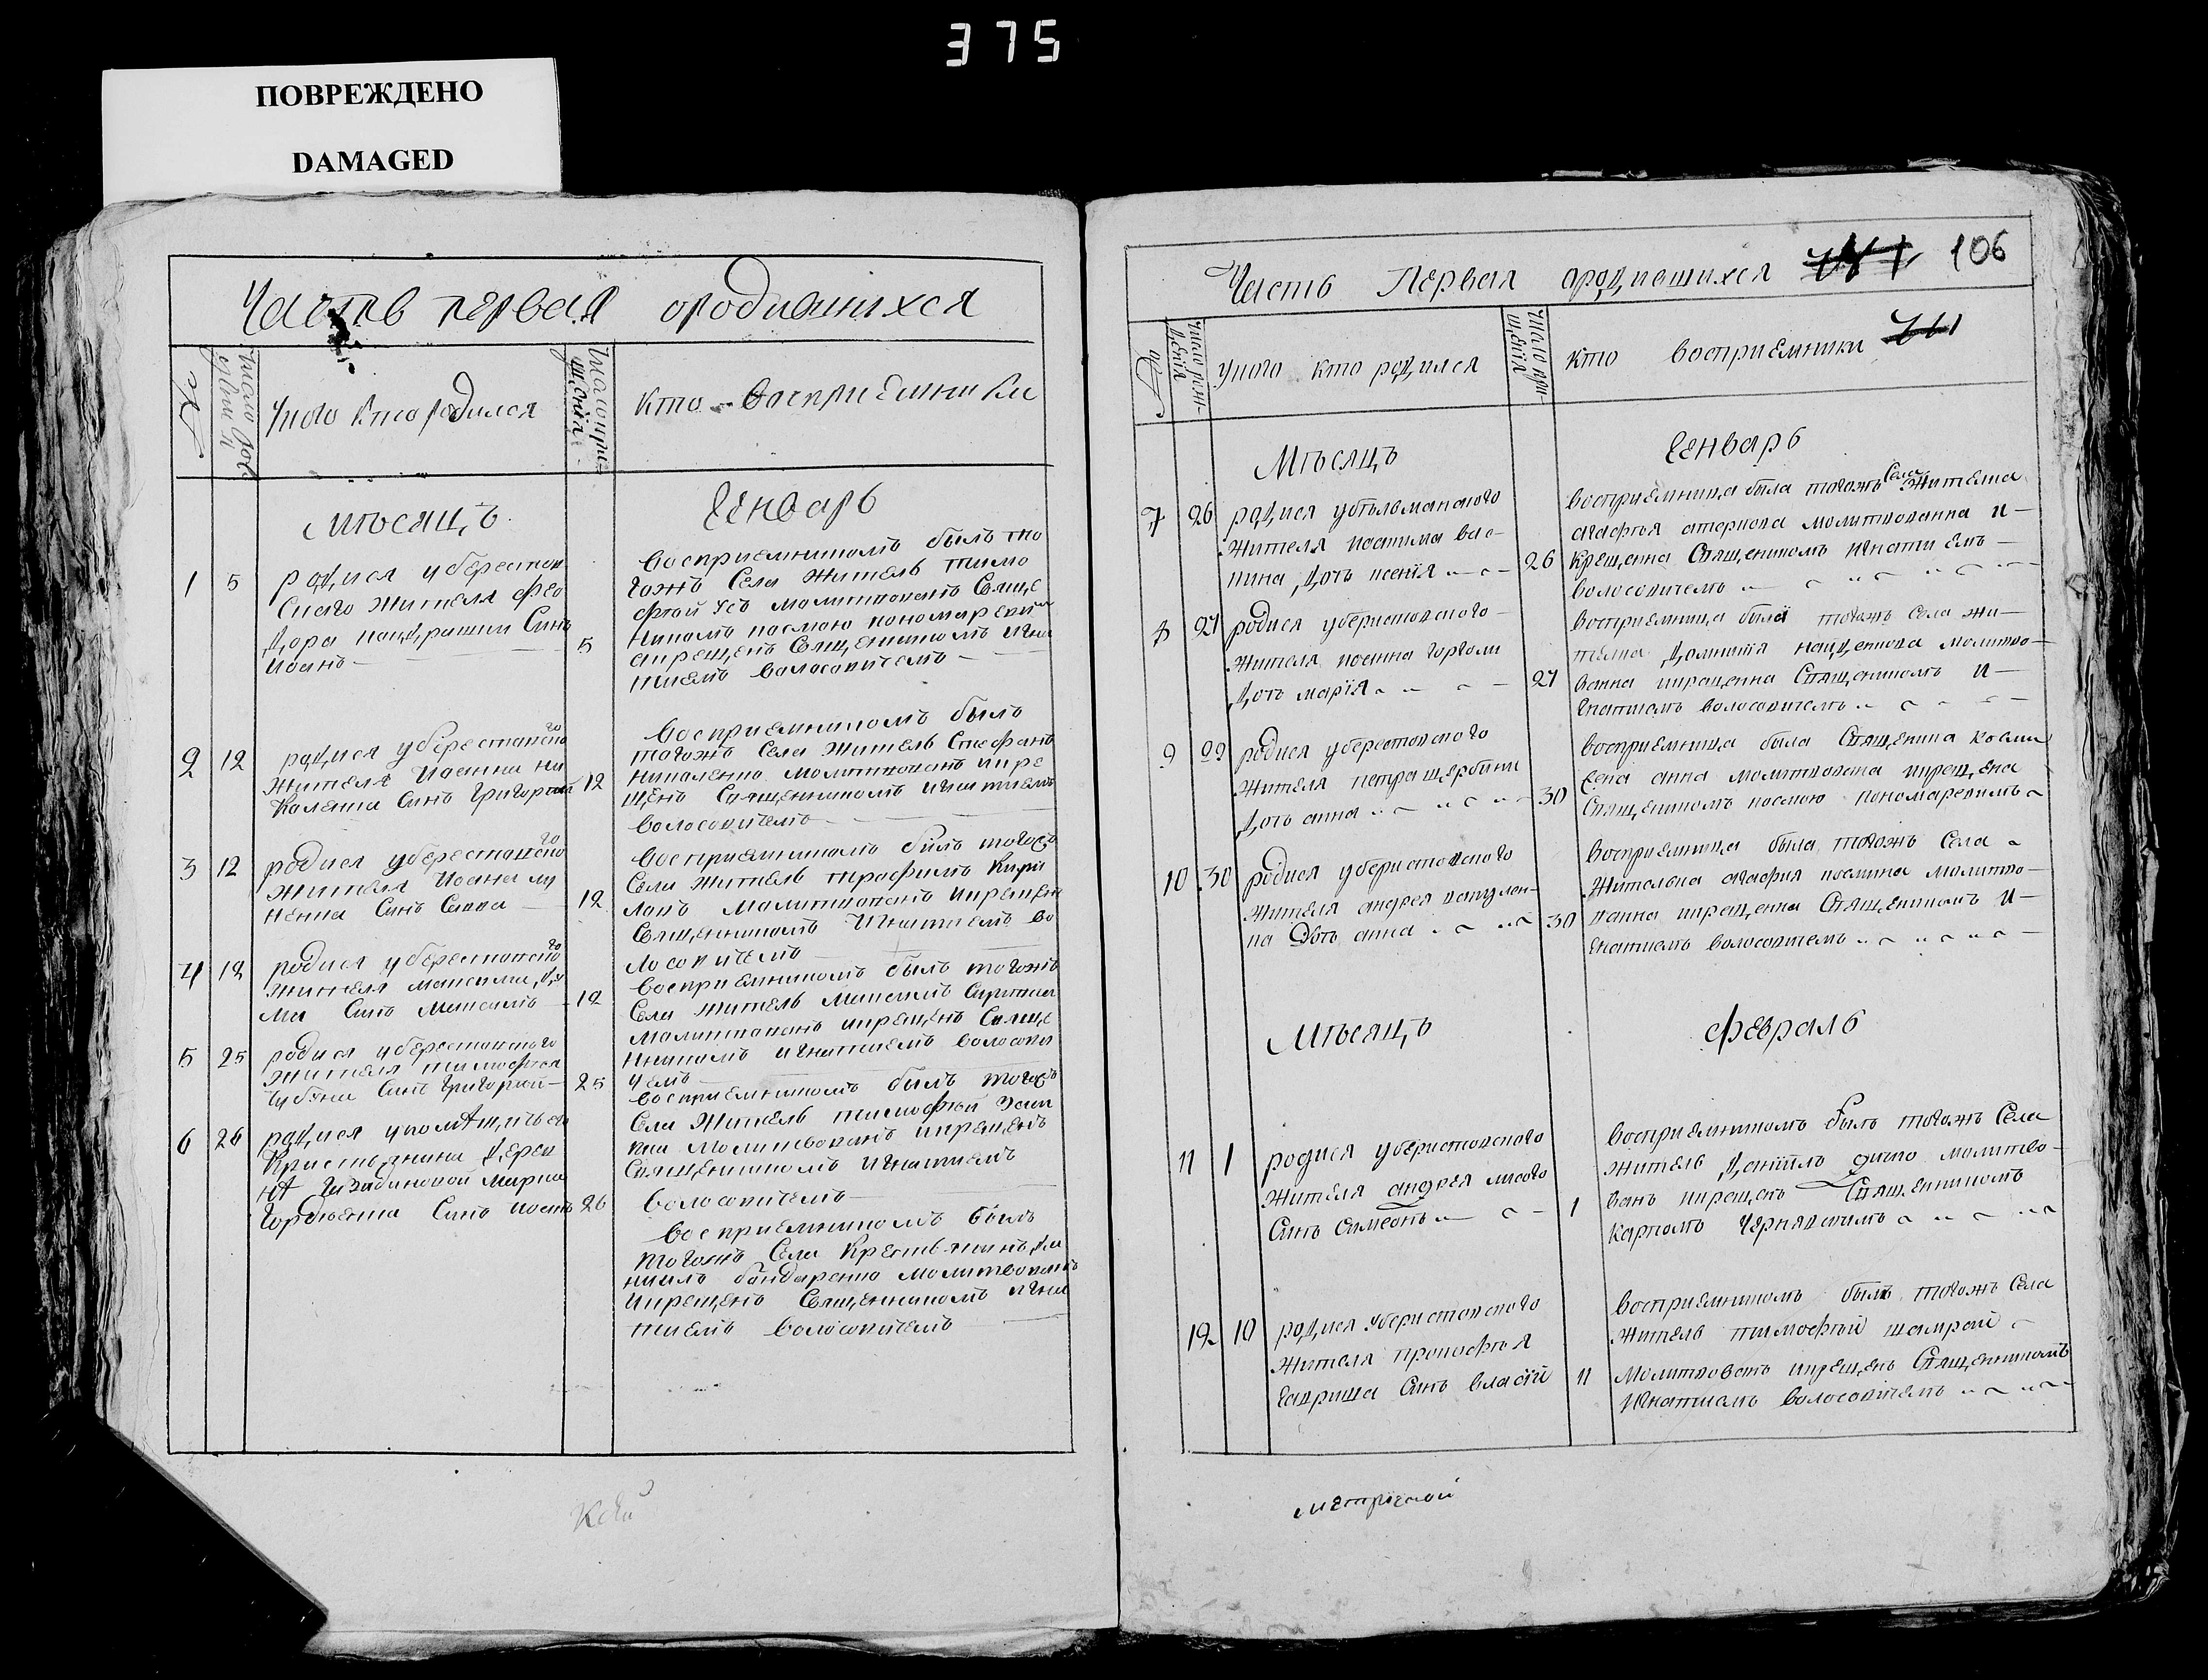 375
ПОВРЕЖДЕНО
DAMAGED
Часть первая ородившихся
№
Число рож
У кого кто родился
Число кре-
щенія
кто восприемники
мѣсяцъ
Генварь
1 5
родися уберестов
скаго жителя фео
дора кандрашки Синъ
иоанъ
5
восприемникомъ былъ то
гожъ Села житель тимо
фтей молитвованъ Свяще
никомъ космою пономаревим
икрещенъ Священикомъ игна
тиемъ волосовичемъ
2 12
родися уберестовско го
жителя иоанна ни
коленка Синъ григорий
12
восприемникомъ былъ
тогожъ Села житель Стефанъ
николенко молитвованъ икре
щенъ Священникомъ игнатиемъ
волосовичемъ
3 12
родися уберестовско го
жителя иоана лу
ненка Синъ Савва
12
восприемникомъ былъ тогожъ
Села житель трофимъ кири
ловъ молитвованъ икрещен
Священникомъ Игнатиемъ во
лосовичемъ
4 12
родися уберестовско го
жителя максима
ма Синъ максимъ
12
восприемникомъ былъ тогожъ
Села житель максимъ
молитвованъ икрещенъ Свяще
нникомъ игнатиемъ волосови
чемъ
5 25
родися уберестовскаго
жителя тимофтея
Синъ григорий
25
восприемникомъ былъ тогожъ
Села житель тимофтей
молитвованъ икрещенъ
Священникомъ игнатиемъ
волосовичемъ
6 26
родися упомѣщичьего
крестьянина дерев
нѣ
Синъ иоанъ
26
восприемникомъ былъ
тогожъ Села крестьянинъ да
ниилъ бондаренко молитвованъ
икрещенъ Священникомъ игна
тиемъ волосовичемъ
Часть Первая ородившихся 106
№
Число рож-
денія
У кого кто родился
Число кре-
щенія
кто восприемники
Мѣсяцъ
Генварь
7 26
родися убѣлеманского
жителя
дочь ксенїя
26
восприемница была тогожъ Села жителка
агафья молитвованна и
крещенна Священикомъ игнатиемъ
волосовичемъ
8 27
родися уберистовского
жителя иоанна горголи
дочь марїя
27
восприемница была тогожъ села жи-
телка молитво-
ванна икрещенна Священикомъ И-
гнатиемъ волосовичемъ
9 29
родися уберестовского
жителя петра щербини
дочь анна
30
восприемница была Священика косми
жена анна молитвована икрещена
Священикомъ космою пономаревимъ
10 30
родися уберистовского
жителя андрея
ка Дочь анна
30
восприемница была тогожъ Села
жителка агафия молитво-
ванна икрещенна Священикомъ И-
гнатиемъ волосовичемъ
Мѣсяцъ
февраль
11 1
родися уберистовского
жителя андрея лисого
Синъ Симеонъ
1
восприемникомъ былъ тогожъ Села
житель Данїилъ молитво-
ванъ икрещенъ Священникомъ
карпомъ чернявскимъ
12 10
родися уберистовского
жителя прокофья
гавриша Синъ власїй
11
восприемникомъ былъ тогожъ Села
житель тимофтей шамрай
молитвованъ икрещенъ Священникомъ
Игнатиемъ волосовичемъ
метрической